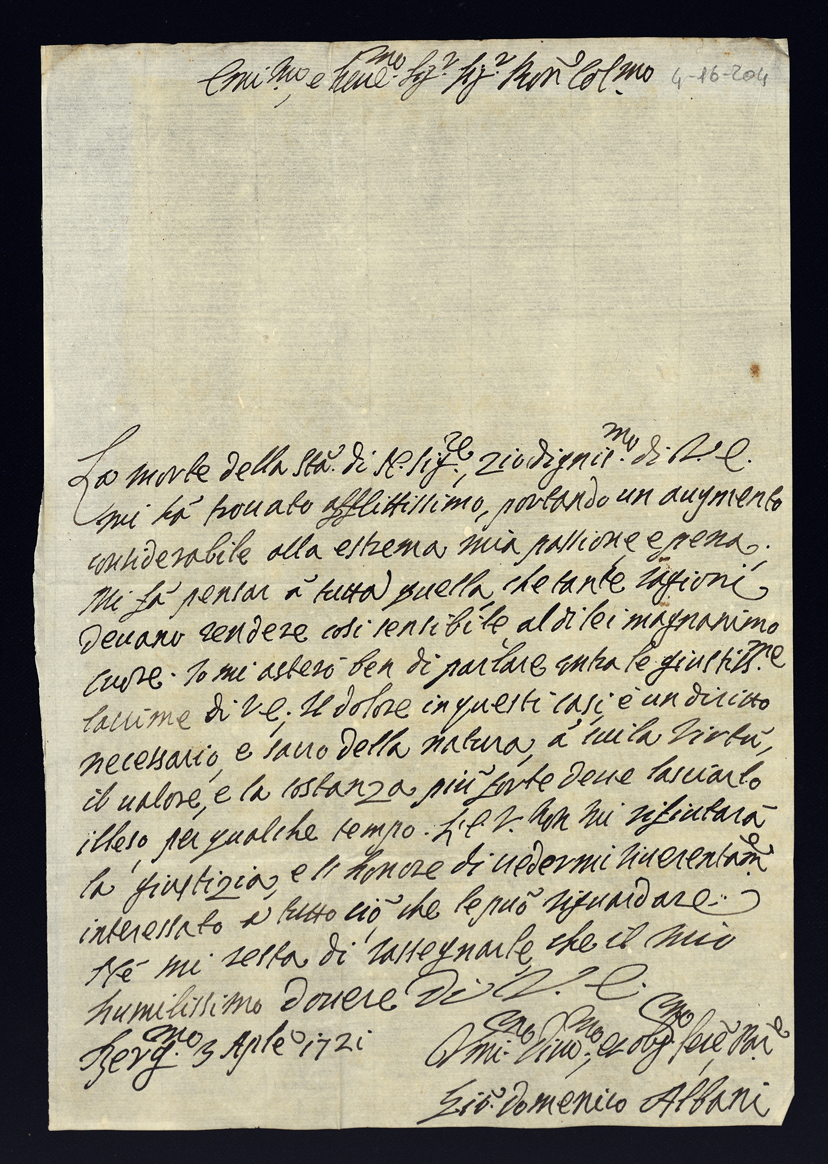 Emi.mo, e Reue.mo Sig.r Sig.r Pron Col.mo 4-16-204
La morte della Sta. di N. Sig.re, zio dignis.mo di V. E.
mi hà trouato afflittissimo, portando un augmento
considerabile alla estrema mia passione, e pena.
Mi fà pensar à tutta quella, che tante ragioni
deuano rendere così sensibile al di lei magnanimo
cuore. Io mi asterò ben di parlare contra le giustis.me
lacrime di V. E.; Il dolore in questi casi è un diritto
necessario, e sacro della natura, à cui la Virtù,
il ualore, e la costanza più forte deue lasciarlo
illeso, per qualche tempo. L'E. V. non mi rifiutarà
la giustizia, e l'honore di uedermi riuerentam.e
interessato à tutto ciò che le può riguardare.
Nè mi resta di rassegnarle che il mio
humilissimo douere Di V. E.
Berg.mo 3 Aple 1721
Vmi.mo Diuo.mo, et obg.mo Serè
Gio: Domenico Albani